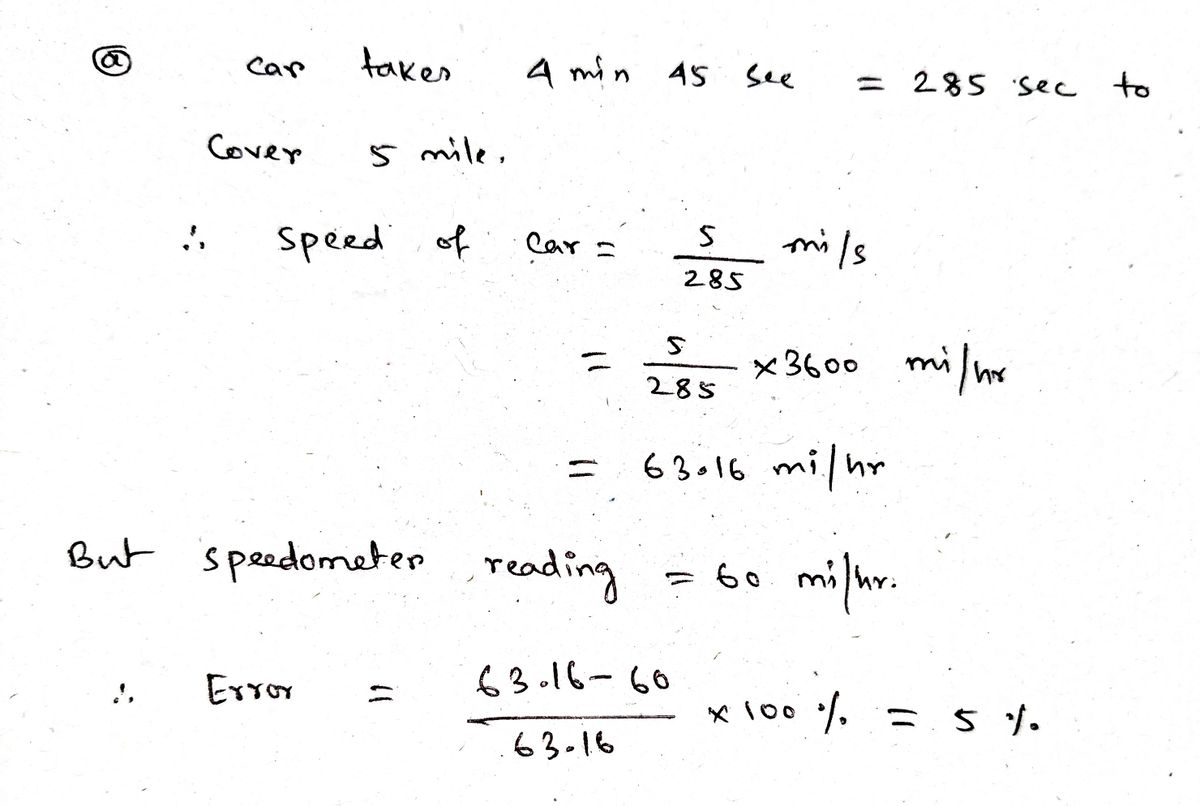 ⓐ car takes 4 min 45 sec = 285 sec to
Cover 5 mile.
∴ speed of Car = 5/285 mi/s
= 5/285 × 3600 mi/hr
= 63.16 mi/hr
But speedometer reading = 60 mi/hr.
∴ Error = (63.16 - 60)/63.16 × 100 % = 5 %